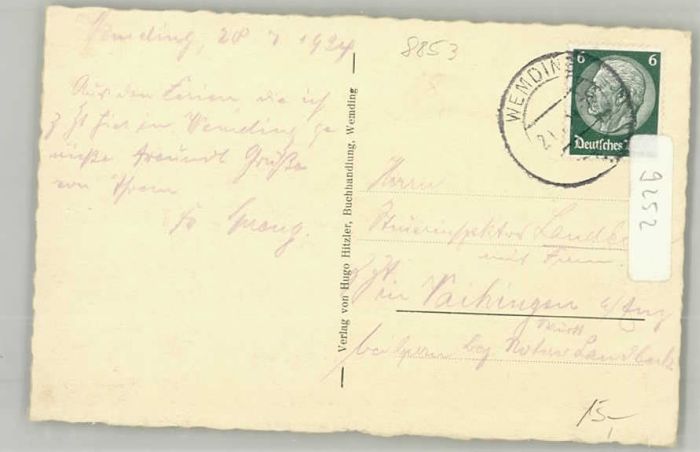 Wemding, 28 7 1934
Aus den Ferien, die ich
z Zt hier in Wemding ge
nieße freundl Grüße
von Ihrem
8853
Verlag von Hugo Hitzler, Buchhandlung, Wemding
WEMDING
6 6
Deutsches
9252
Herrn
Steuerinspektor
mit Frau
z Zt.
in Vaihingen a/Enz
Württ
bei Herrn Notar
15,-